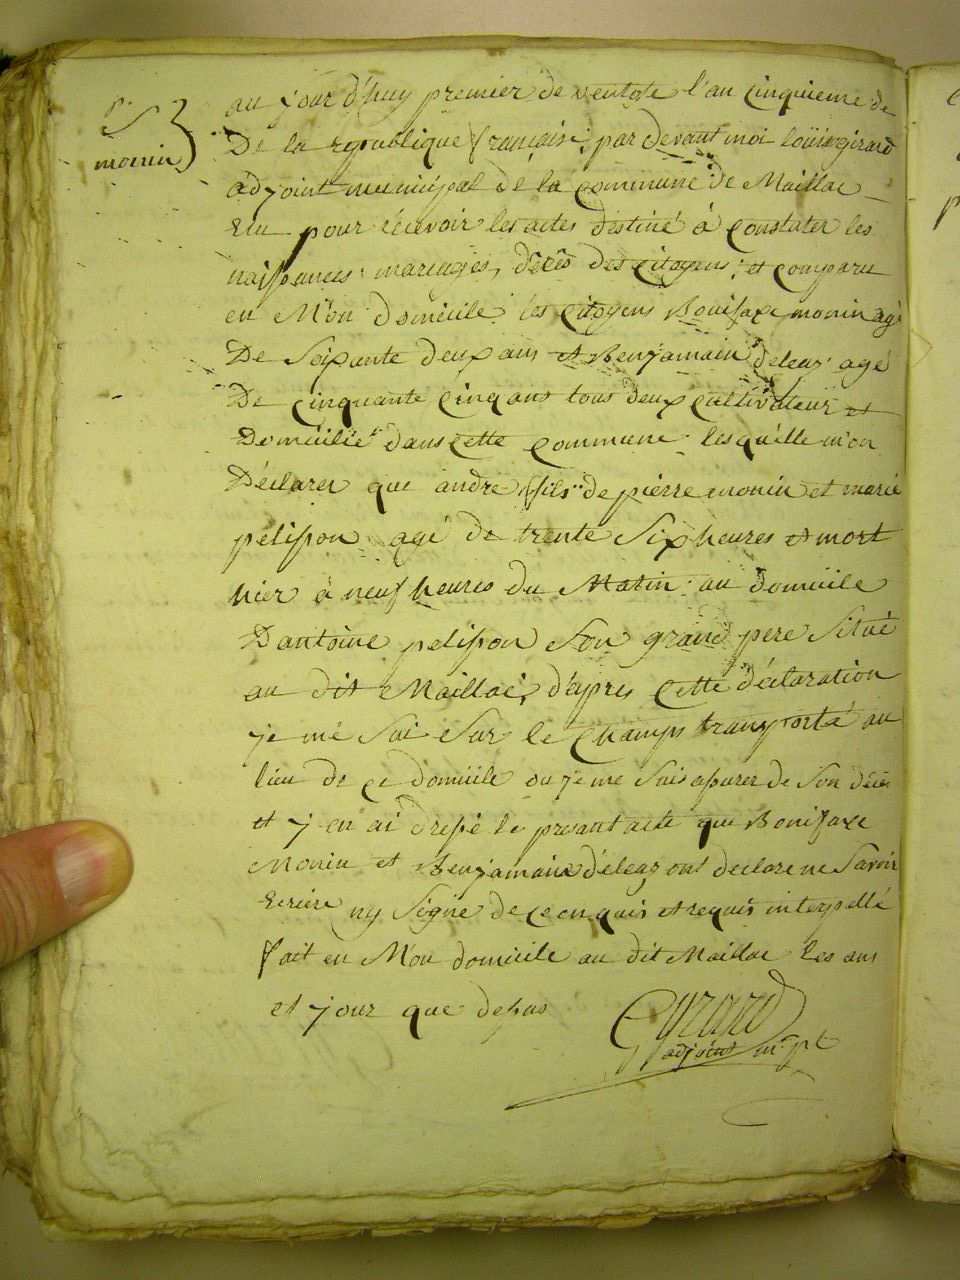 monin
au jour d'huy premier de ventose l'an cinquieme de
De la republique française; par devant moi louis girard
adjoint municipal de la commune de Maillac
Elu pour récevoir les actes destiné à constater les
naissances, mariages, décès des citoyens; et comparu
en Mon domicile les citoyens Bonifaxe monin agé
De soixante deux ans et Benjamain déleaz agé
De cinquante cinq ans tous deux cultivateur et
Domicilié dans cette commune lesquélle m'on
Déclarer que andré fils de pierre monin et marie
pelisson agé de trente six heures et mort
hier à neuf heures du Matin au domicile
Dantoine pelisson son grand pere situé
au dit Maillac, d'apres cette déclaration
je mé sui sur le champs transporté au
lieu de ce domicile ou je me suis assurer de son décès
et j en ai dressé le présant acte que Bonifaxe
Monin et Benjamain déleaz ont declare ne savoir
Ecrire ny signé de ce enquis et requis interpellé
fait en Mon domicile au dit Maillac les ans
et jour que dessus
Gyrard
adjoint m.pl